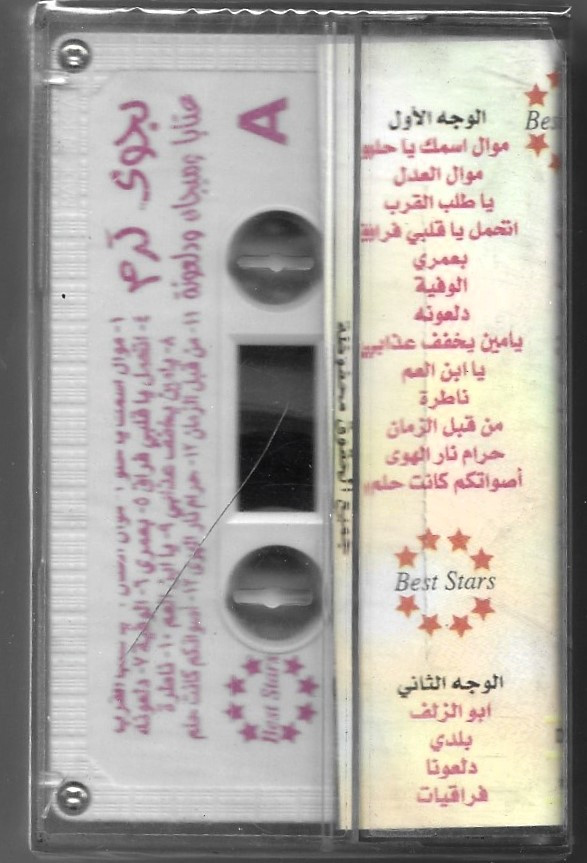 الوجه الأول
موال اسمك يا حلم
موال العدل
يا طلب القرب
اتحمل يا قلبي فراق
بعمري
الوفية
دلعونه
يامين يخفف عذابي
يا ابن العم
ناطرة
من قبل الزمان
حرام نار الهوى
أصواتكم كانت حلم
Best Stars
الوجه الثاني
ابو الزلف
بلدي
دلعونا
فراقيات
Bes
A
عتابا وميجانا ودلعونة
نجوى كرم
١- موال اسمك يا
٤- اتحمل يا قلبي فراق ٥- بعمري ٦- الوفية ٧- دلعونه
٨- يامين يخفف عذابي ٩- يا ابن العم ١٠- ناطرة
١١- من قبل الزمان ١٢- حرام نار الهوى ١٣- أصواتكم كانت حلم
Best Stars
جميع الحقوق محفوظة